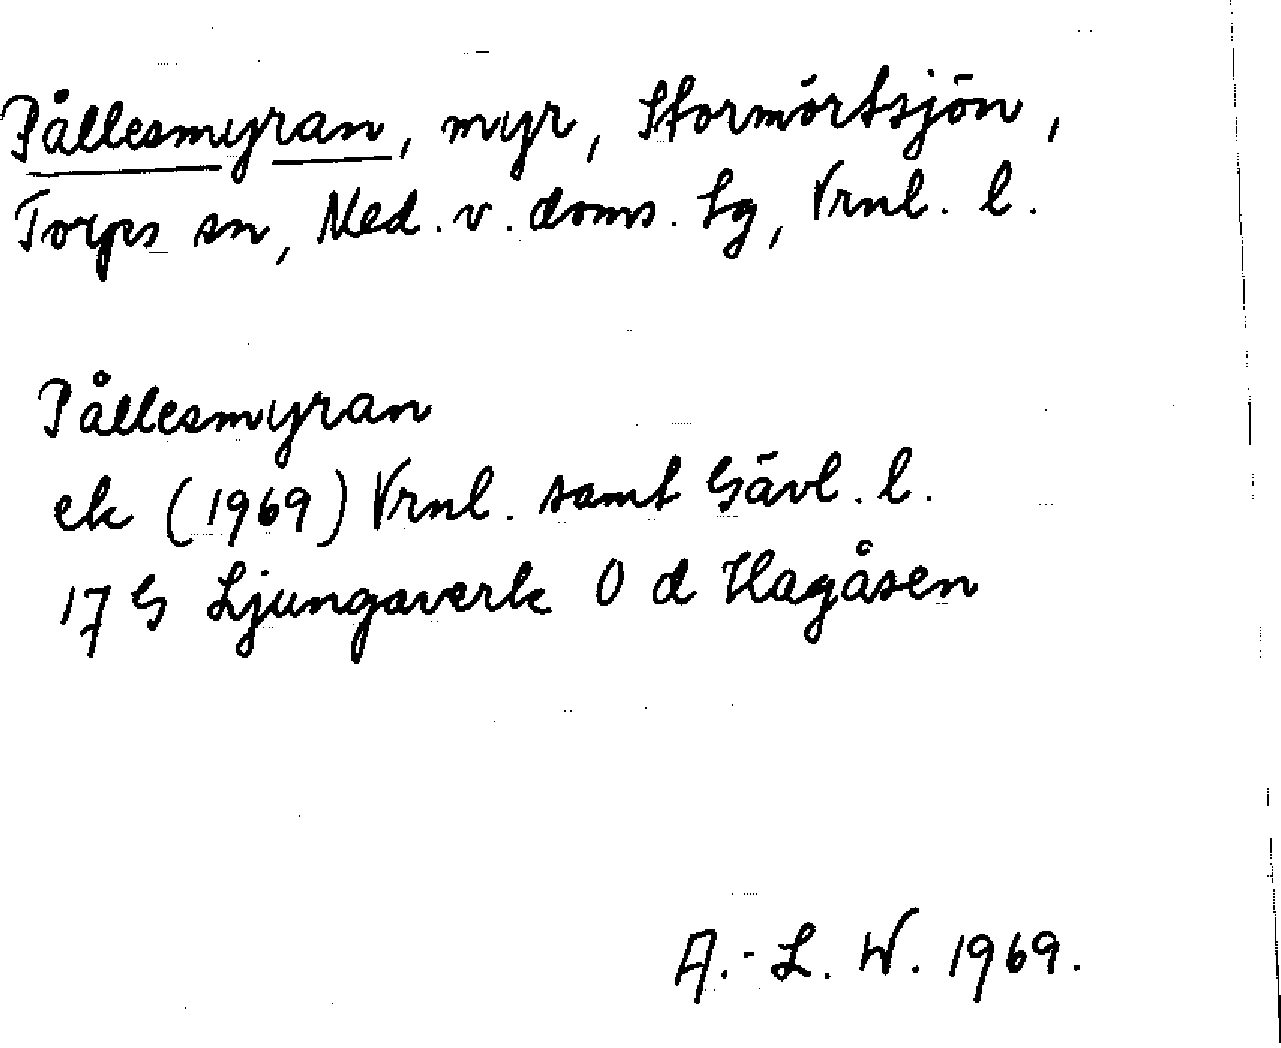 Pållesmyran, myr, Stormörtsjön,
Torps sn, Med. v. doms. tg, Vrnl. l.
Pållesmyran
ek (1969) Vrnl. samt Gävl. l.
17 G Ljungaverk O d Hagåsen
A.-L. W. 1969.